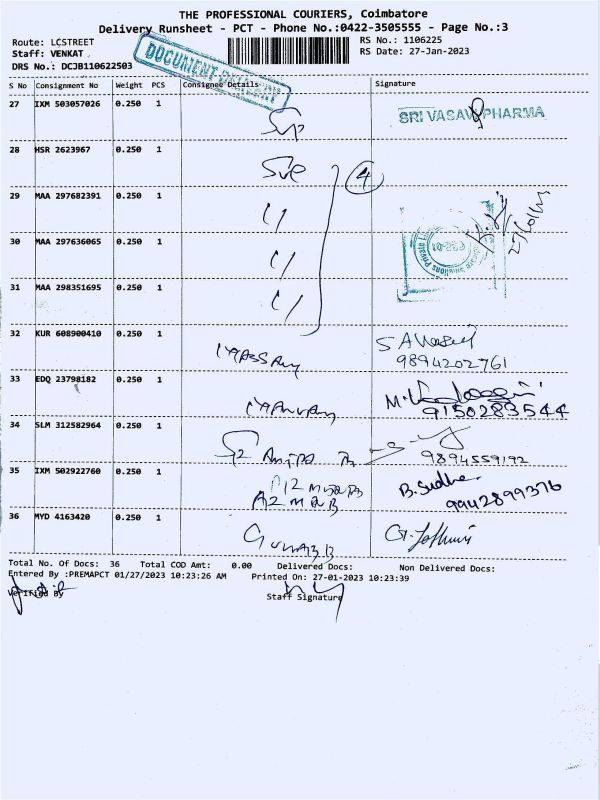 THE PROFESSIONAL COURIERS, Coimbatore
Delivery Runsheet - PCT - Phone No.:0422-3505555 - Page No.:3
Route: LCSTREET
RS No.: 1106225
Staff: VENKAT
RS Date: 27-Jan-2023
DRS No.: DCJB110622503
DOCUMENT DELIVERY
S No Consignment No Weight PCS Consignee Details Signature
27 IXM 503057026 0.250 1
SRI VASAVI PHARMA
28 HSR 2623967 0.250 1
4
29 MAA 297682391 0.250 1
30 MAA 297636065 0.250 1
31 MAA 298351695 0.250 1
32 KUR 608900410 0.250 1
9894202761
33 EDQ 23798182 0.250 1
9150283544
34 SLM 312582964 0.250 1
9894559192
35 IXM 502922760 0.250 1
B. Sudha
9942899376
36 MYD 4163420 0.250 1
Total No. Of Docs: 36 Total COD Amt: 0.00 Delivered Docs: Non Delivered Docs:
Entered By :PREMAPCT 01/27/2023 10:23:26 AM Printed On: 27-01-2023 10:23:39
Verified By Staff Signature